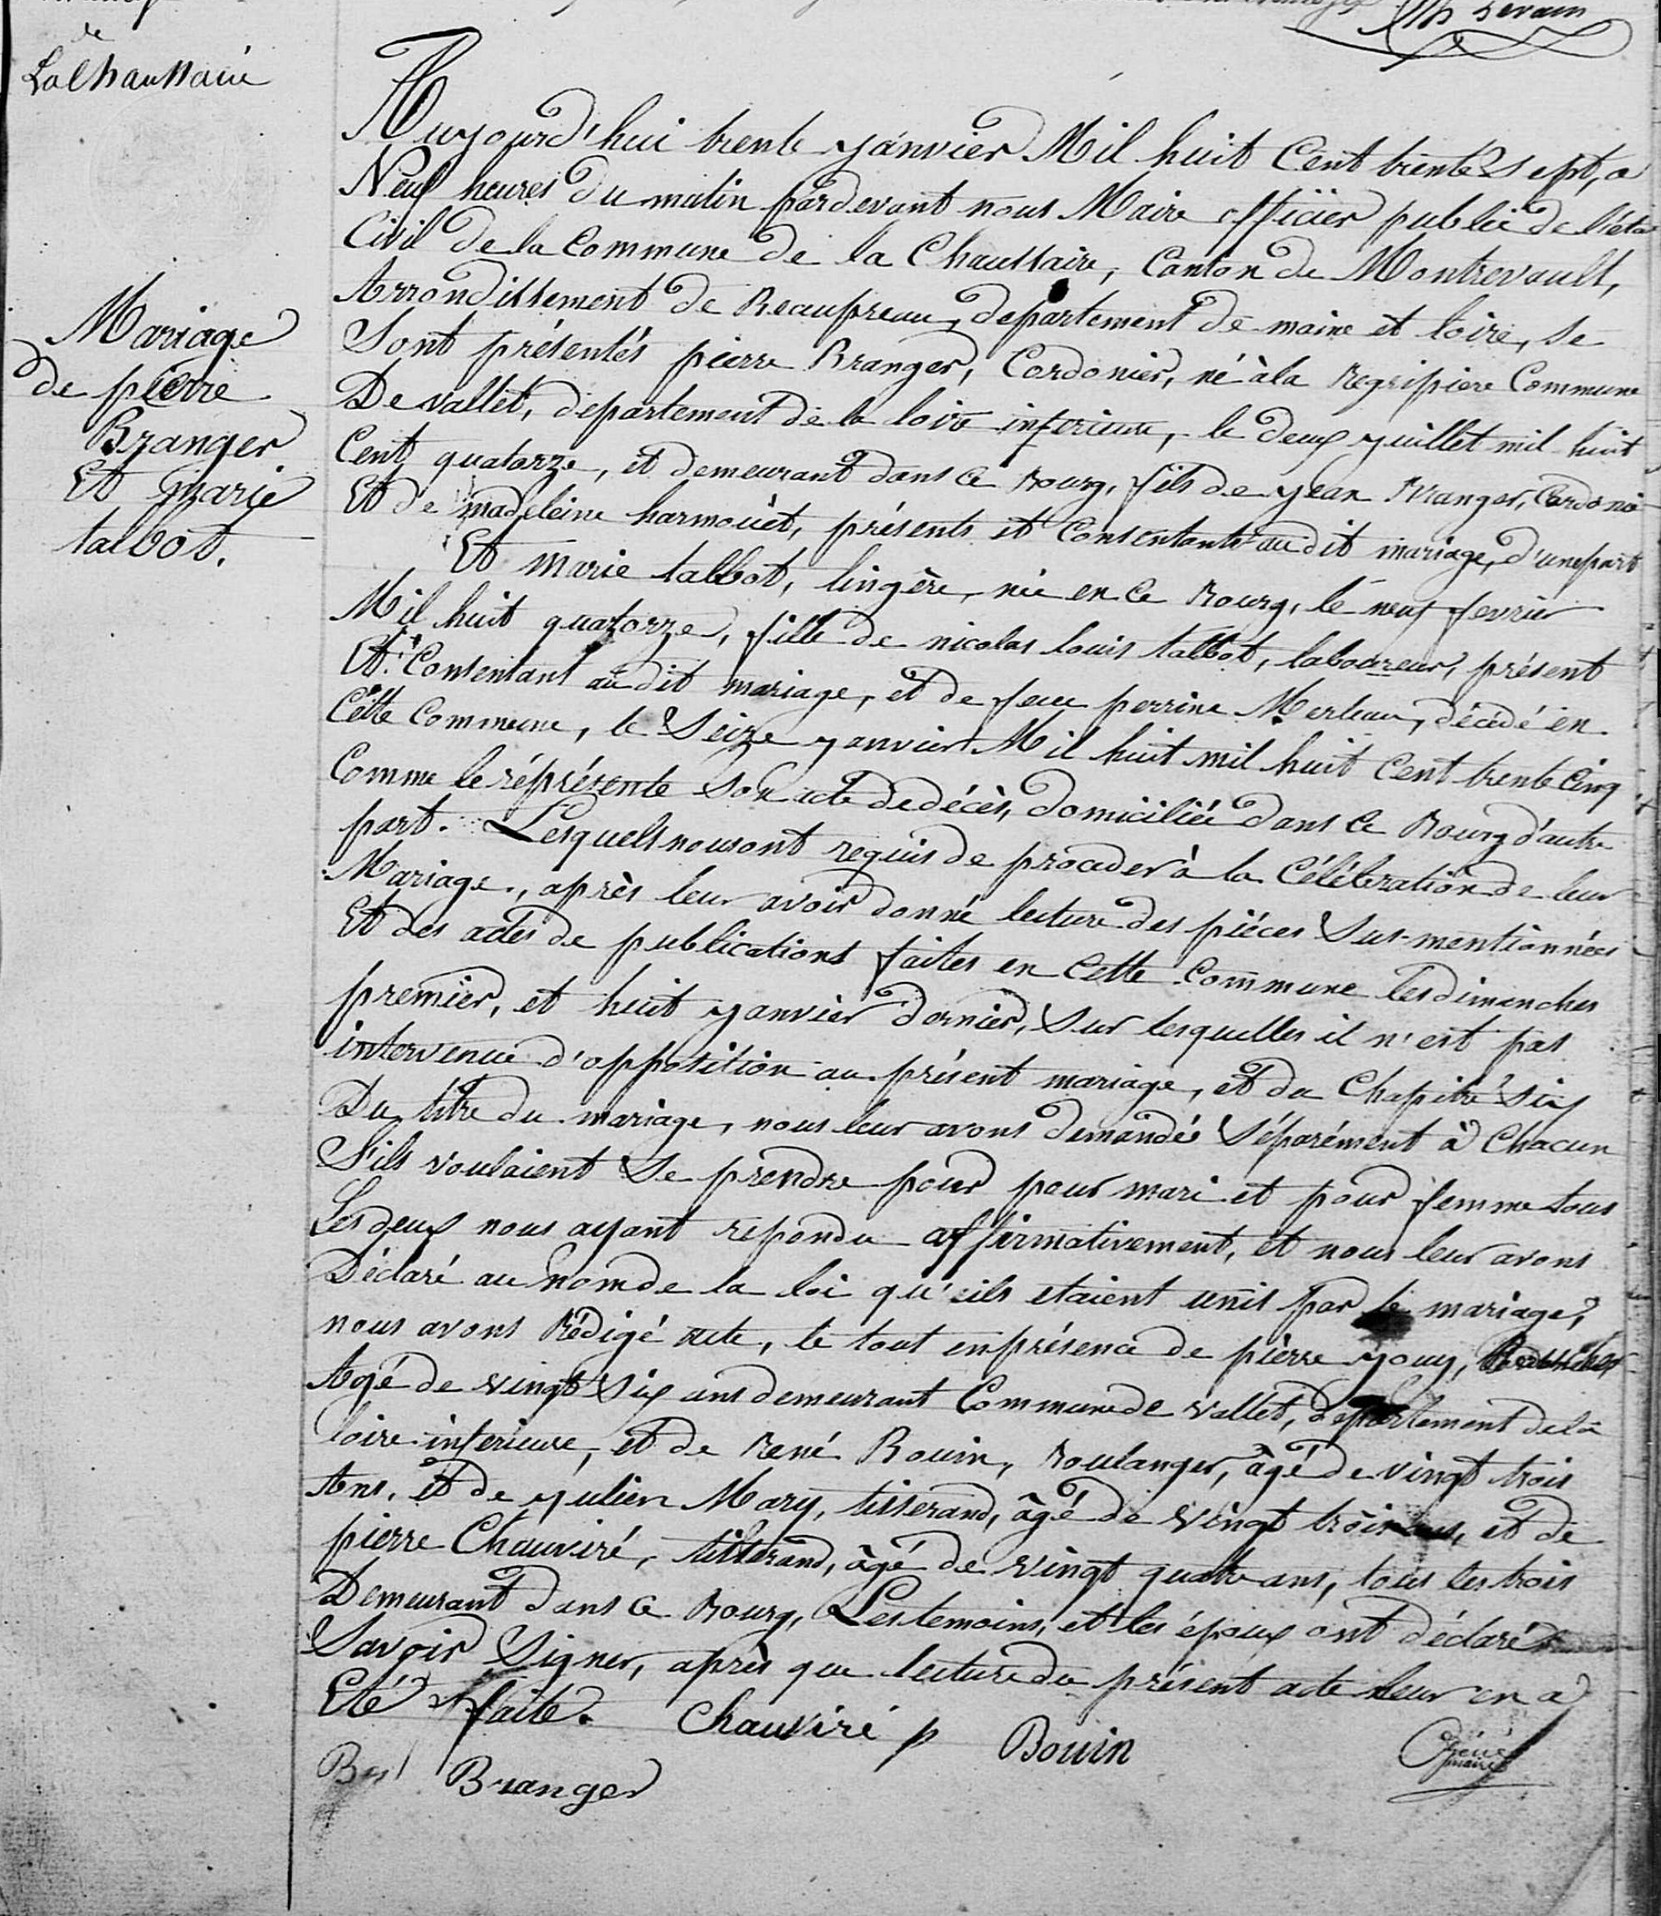 de
LaChaussaire
Mariage
de pierre
Branger
Et Marie
talbot.
Aujourd'hui trente janvier Mil huit Cent trente sept, a
Neuf heures du matin pardevant nous Maire officier public de l'état
Civil de la Commune de la Chaussaire, Canton de Montrevault,
Arrondissement de Beaupreau, departement de maine et loire, se
Sont présentés pierre Branger, Cordonier, né à la regripiere Commune
De vallet, departement de la loire inferieure, le deux juillet mil huit
Cent quatorze, et demeurant dans ce Bourg, fils de jean Branger, Cordonié
Et de madeleine harmouët, présents et Consentants audit mariage, d'une part
Et Marie talbot, lingère, née en ce Bourg, le neuf fevrier
Mil huit quatorze, fille de nicolas louis talbot, laboureur, présent
Et Consentant audit mariage, et de feue perrine Merleau, décédé en
Cette Commune, le Seize janvier Mil huit mil huit Cent trente Cinq
Comme le réprézente son acte de décès, domiciliée dans ce Bourg d'autre
part. Lesquels nous ont requis de proceder à la Célébration de leur
Mariage, après leur avoir donné lecture des piéces Sus-mentionnées
Et des actes de publications faites en Cette Commune les dimanches
premier, et huit janvier dernier, Sur lesquelles il n'est pas
intervenue d'opposition au présent mariage, et du Chapitre Six
Du titre du mariage, nous leur avons demandés Séparément à Chacun
S'ils voulaient Se prendre pour pour mari et pour femme tous
Les deux nous ayant repondu affirmativement, et nous leur avons
Déclaré au nom de la loi qu'ils etaient unis par le mariage,
nous avons Rédigé acte, le tout en présence de pierre jouy,
Agé de vingt Six ans demeurant Commune de vallet, departement de la
loire inferieure, et de René Bouin, Boulanger, âgé de vingt trois
Ans, et de julien Mary, tisserand, âgé de vingt trois ans, et de
pierre Chauviré, tisserand, âgé de vingt quatre ans, tous les trois
Demeurant dans ce Bourg, Les temoins, et les époux ont déclaré
Savoir Signer, après que lecture du présent acte leur en a
Eté faite. Chauviré p Bouin
Branger
maire